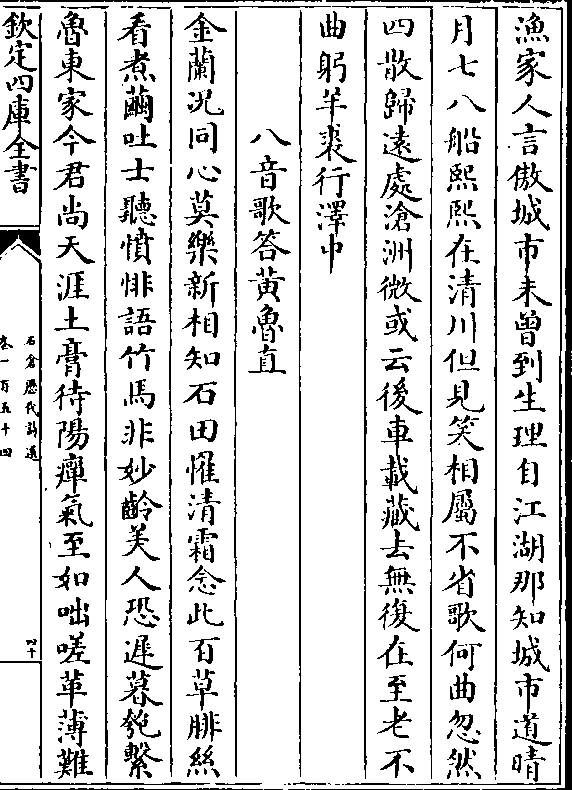 漁家人言傲城市未曽到生理自江湖那知城市道晴
月七八船熙熙在清川但見笑相屬不省歌何曲忽然
四散歸遠處滄洲微或云後車載藏去無復在至老不
曲躬羊裘行澤中
八音歌答黃魯直
金蘭况同心莫樂新相知石田懼清霜念此百草腓絲
看煮繭吐士聽憤悱語竹馬非妙齡美人恐遲暮匏繫
魯東家今君尚天涯土膏待陽癉氣至如咄嗟革薄難
欽定四庫全書
石倉歷代詩選
卷一百五十四
四十